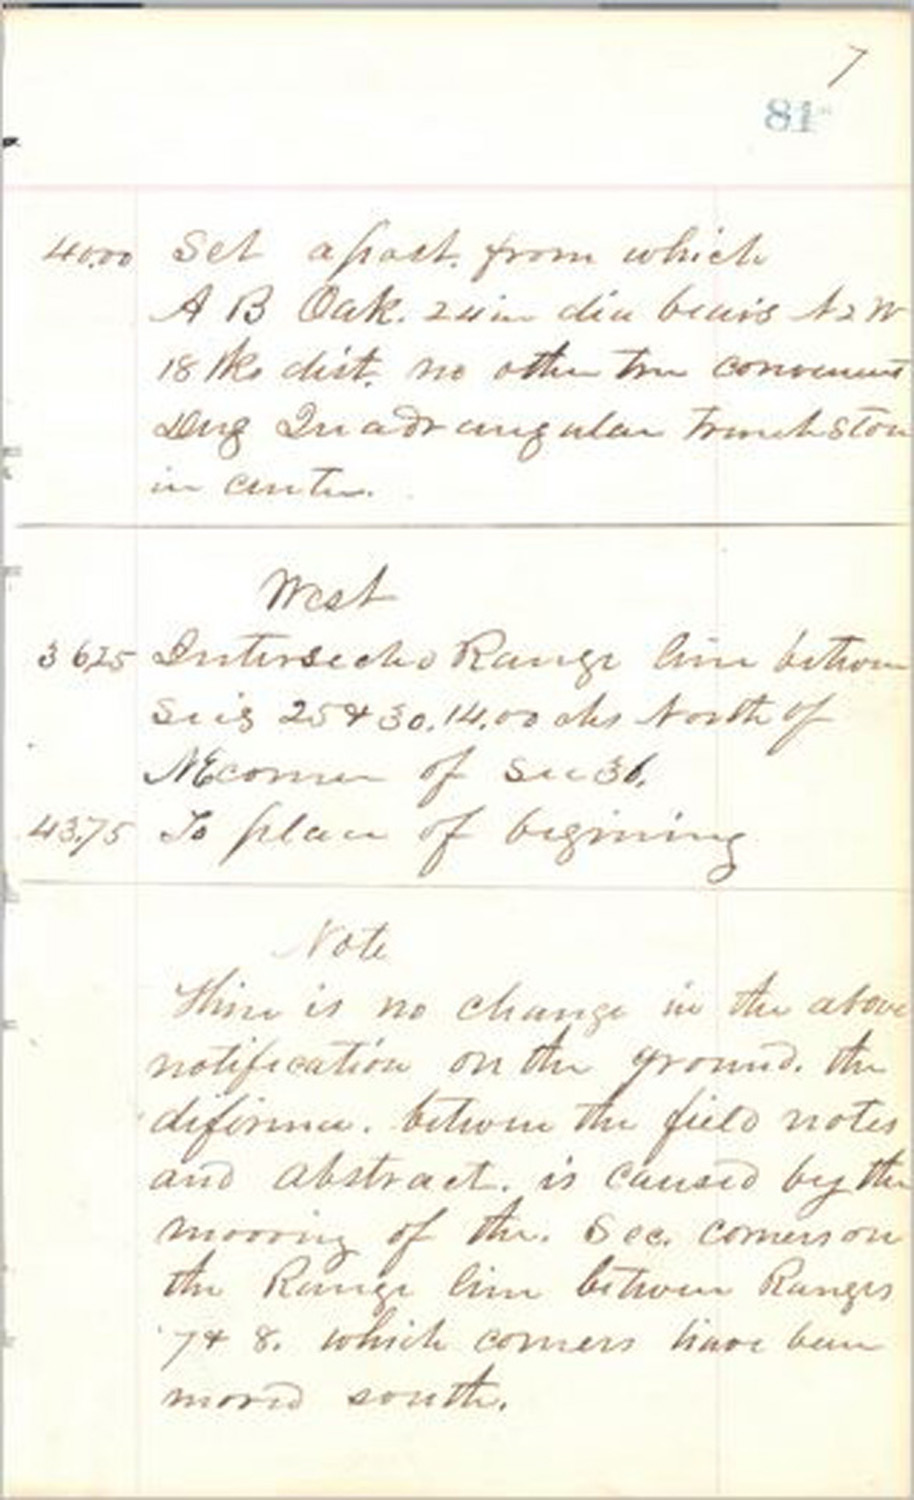 7
81
40.00 Set a post. from which
A B Oak. 24 in dia bears N 2 W
18 lks dist. no other tree convenient
Dug Quadrangular Trench Stone
in center.
West
36.25 Intersects Range line between
Secs 25 & 30. 14.00 chs North of
NE corner of Sec 36.
43.75 To place of begining
Note
There is no change in the above
notification on the ground. the
diference. between the field notes
and abstract. is caused by the
mooving of the. Sec. corners on
the Range line between Ranges
7 & 8. which corners have been
moved south.